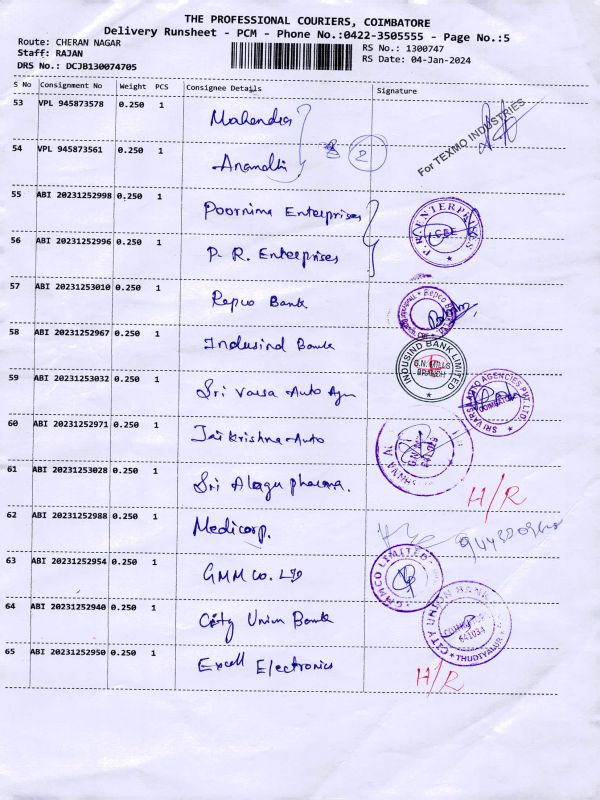 THE PROFESSIONAL COURIERS, COIMBATORE
Delivery Runsheet - PCM - Phone No.:0422-3505555 - Page No.:5
Route: CHERAN NAGAR
RS No.: 1300747
Staff: RAJAN
RS Date: 04-Jan-2024
DRS No.: DCJB130074705
S No Consignment No Weight PCS Consignee Details Signature
53 VPL 945873578 0.250 1 Mahendra
For TEXMO INDUSTRIES
54 VPL 945873561 0.250 1 Anandhi
2
55 ABI 20231252998 0.250 1 Poornima Enterprises
P.R. ENTERPRISES
56 ABI 20231252996 0.250 1 P. R. Enterprises
57 ABI 20231253010 0.250 1 Repco Bank
58 ABI 20231252967 0.250 1 Indusind Bank
INDUSIND BANK LIMITED
G.N. MILLS
BRANCH
59 ABI 20231253032 0.250 1 Sri Varsa Auto Agn
SRI VARSA AUTO AGENCIES PVT. LTD.
COIMBATORE
60 ABI 20231252971 0.250 1 Jai Krishna Auto
61 ABI 20231253028 0.250 1 Sri Alagu pharma.
H/R
62 ABI 20231252988 0.250 1 Medicorp.
63 ABI 20231252954 0.250 1 GMM CO. LTD
GMMCO LIMITED
64 ABI 20231252940 0.250 1 City Union Bank
CITY UNION BANK
641034
THUDIYALUR
65 ABI 20231252950 0.250 1 Excell Electronics
H/R